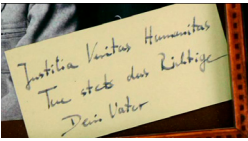 Justitia Veritas Humanitas
Tue stets das Richtige
Dein Vater